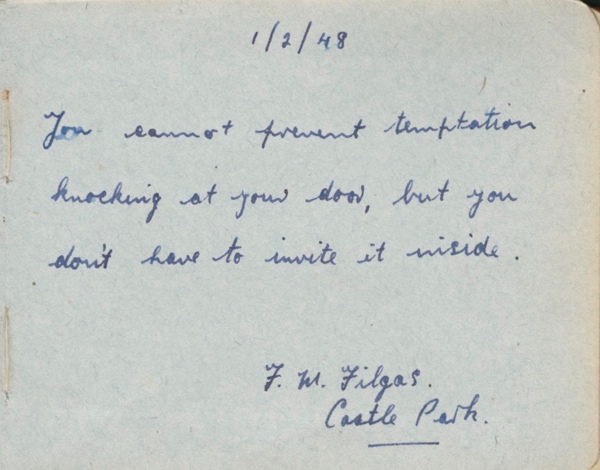 1/2/48
You cannot prevent temptation
knocking at your door, but you
don't have to invite it inside.
F. M. Filgas.
Castle Park.